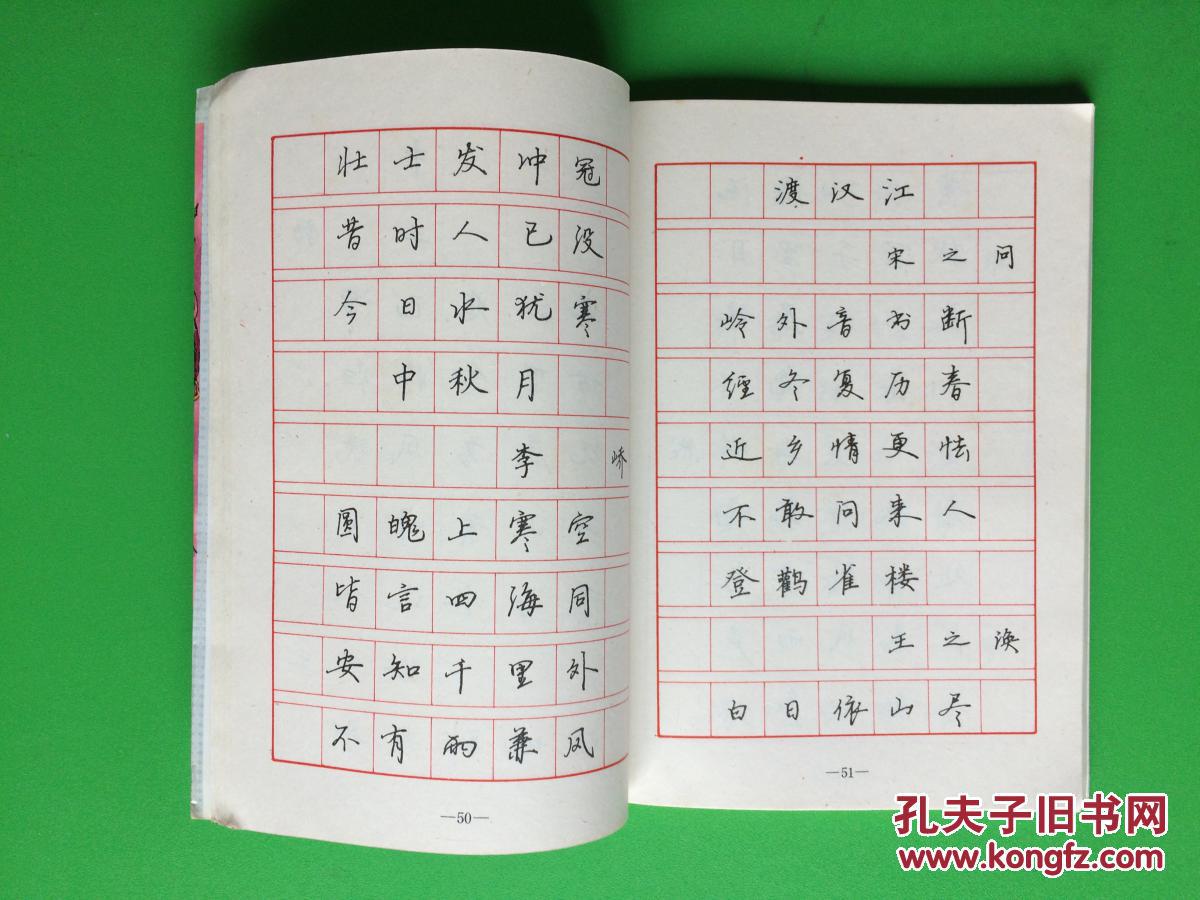 壮士发冲冠
昔时人已没
今日水犹寒
中秋月
李峤
圆魄上寒空
皆言四海同
安知千里外
不有雨兼风
—50—
渡汉江
宋之问
岭外音书断
经冬复历春
近乡情更怯
不敢问来人
登鹳雀楼
王之涣
白日依山尽
—51—
孔夫子旧书网
www.kongfz.com